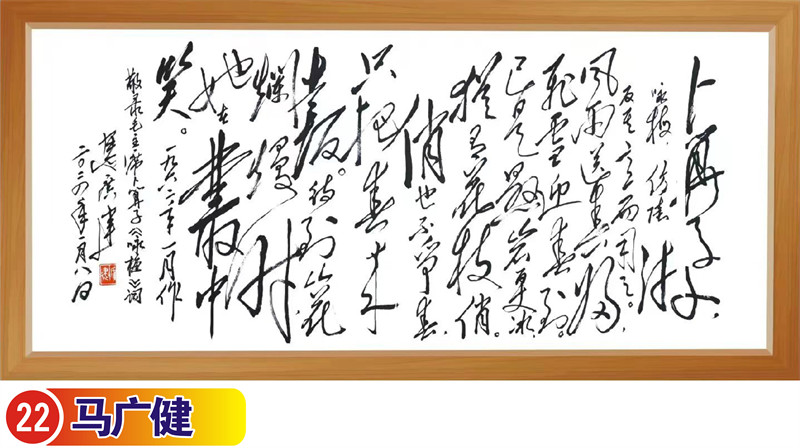 卜算子，
咏梅，读陆游
反其意而用之。
风雨送春归，
飞雪迎春到。
已是悬岩冰，
犹有花枝俏。
俏也不争春，
只把春来
春报。待到山花
烂漫时
她在叢中
笑。一九六二年一月作
敬录毛主席卜算子《咏梅》词
马广健
二〇二四年月八日
22 马广健